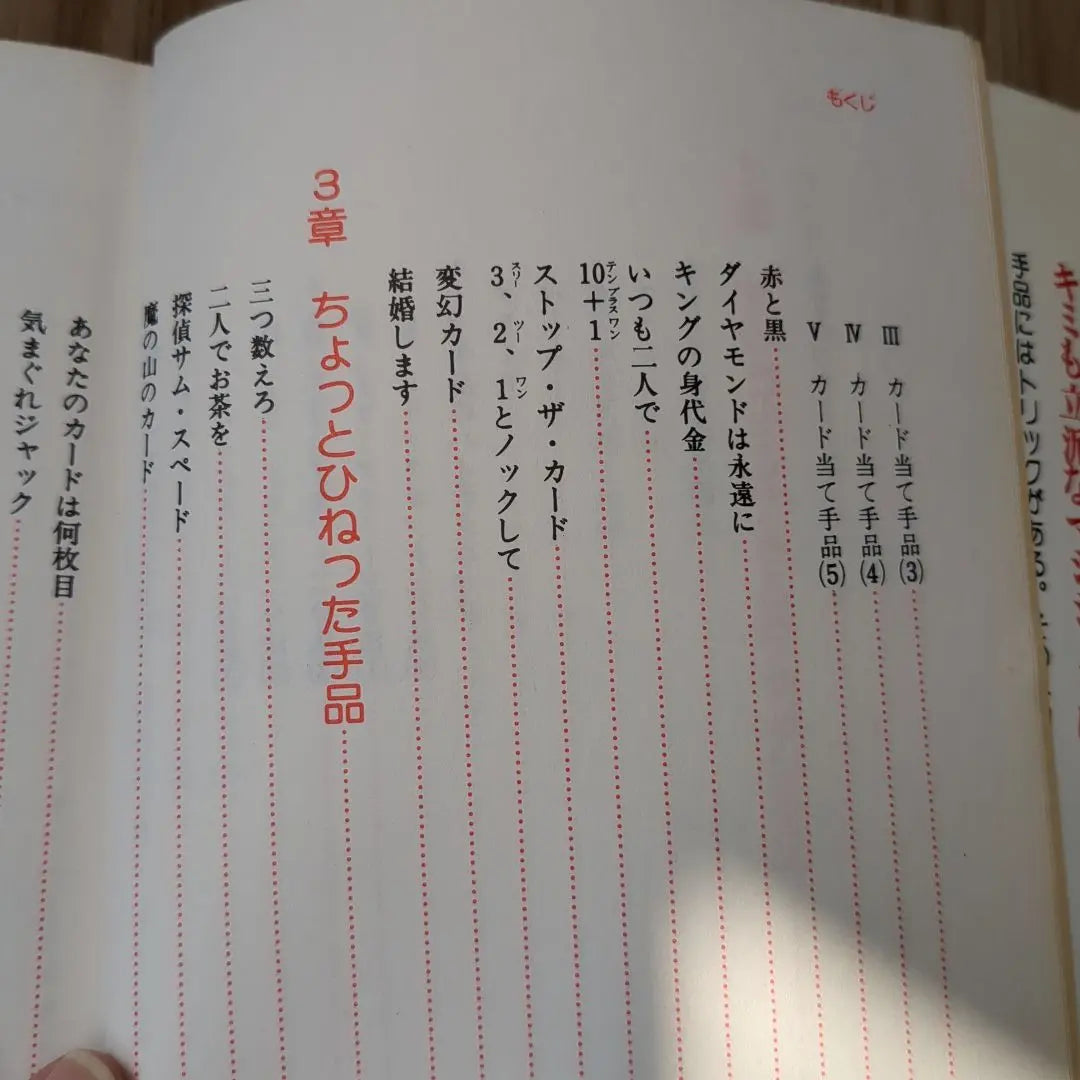 キミも立派なマジ
手品にはトリックがある。その
もくじ
Ⅲ カード当て手品(3)
Ⅳ カード当て手品(4)
Ⅴ カード当て手品(5)
赤と黒
ダイヤモンドは永遠に
キングの身代金
いつも二人で
10+1 テンプラスワン
ストップ・ザ・カード
3、2、1とノックして スリー ツー ワン
変幻カード
結婚します
3章 ちょっとひねった手品
三つ数えろ
二人でお茶を
探偵サム・スペード
魔の山のカード
あなたのカードは何枚目
気まぐれジャック